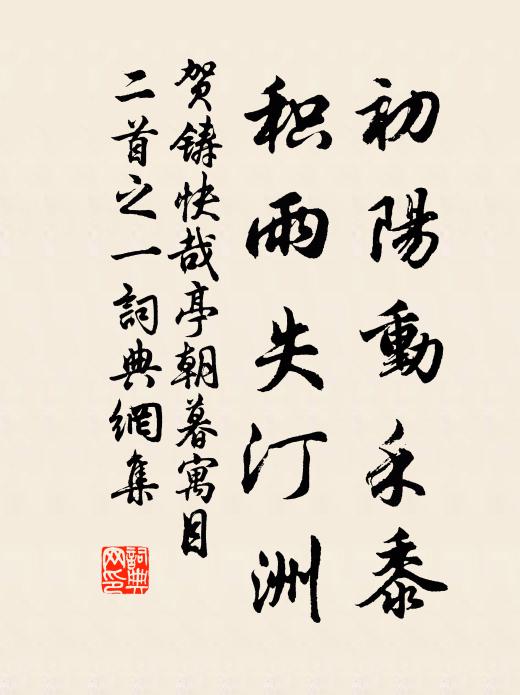 初陽動禾黍
积雨失汀洲
贺鑄快哉亭朝暮寓目
二首之一詞典網集
詞典网印